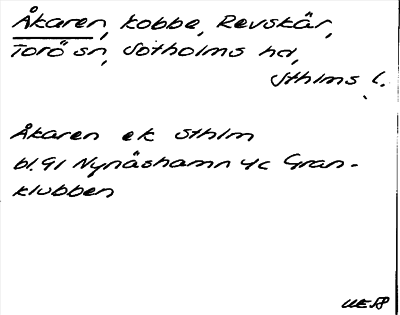 Åkaren, kobbe, Revskär,
Torö sn, Sotholms hd,
Sthlms l.
Åkaren ek Sthlm
bl. 91 Nynäshamn 4c Gran-
klubben